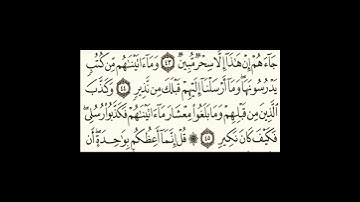 جَآءَهُمْ إِنْ هَٰذَآ إِلَّا سِحْرٌ مُّبِينٌ ٤٣ وَمَآ ءَاتَيْنَٰهُم مِّن كُتُبٍ
يَدْرُسُونَهَا وَمَآ أَرْسَلْنَآ إِلَيْهِمْ قَبْلَكَ مِن نَّذِيرٍ ٤٤ وَكَذَّبَ
ٱلَّذِينَ مِن قَبْلِهِمْ وَمَا بَلَغُوا۟ مِعْشَارَ مَآ ءَاتَيْنَٰهُمْ فَكَذَّبُوا۟ رُسُلِى
فَكَيْفَ كَانَ نَكِيرِ ٤٥ ۞ قُلْ إِنَّمَآ أَعِظُكُم بِوَٰحِدَةٍ أَن